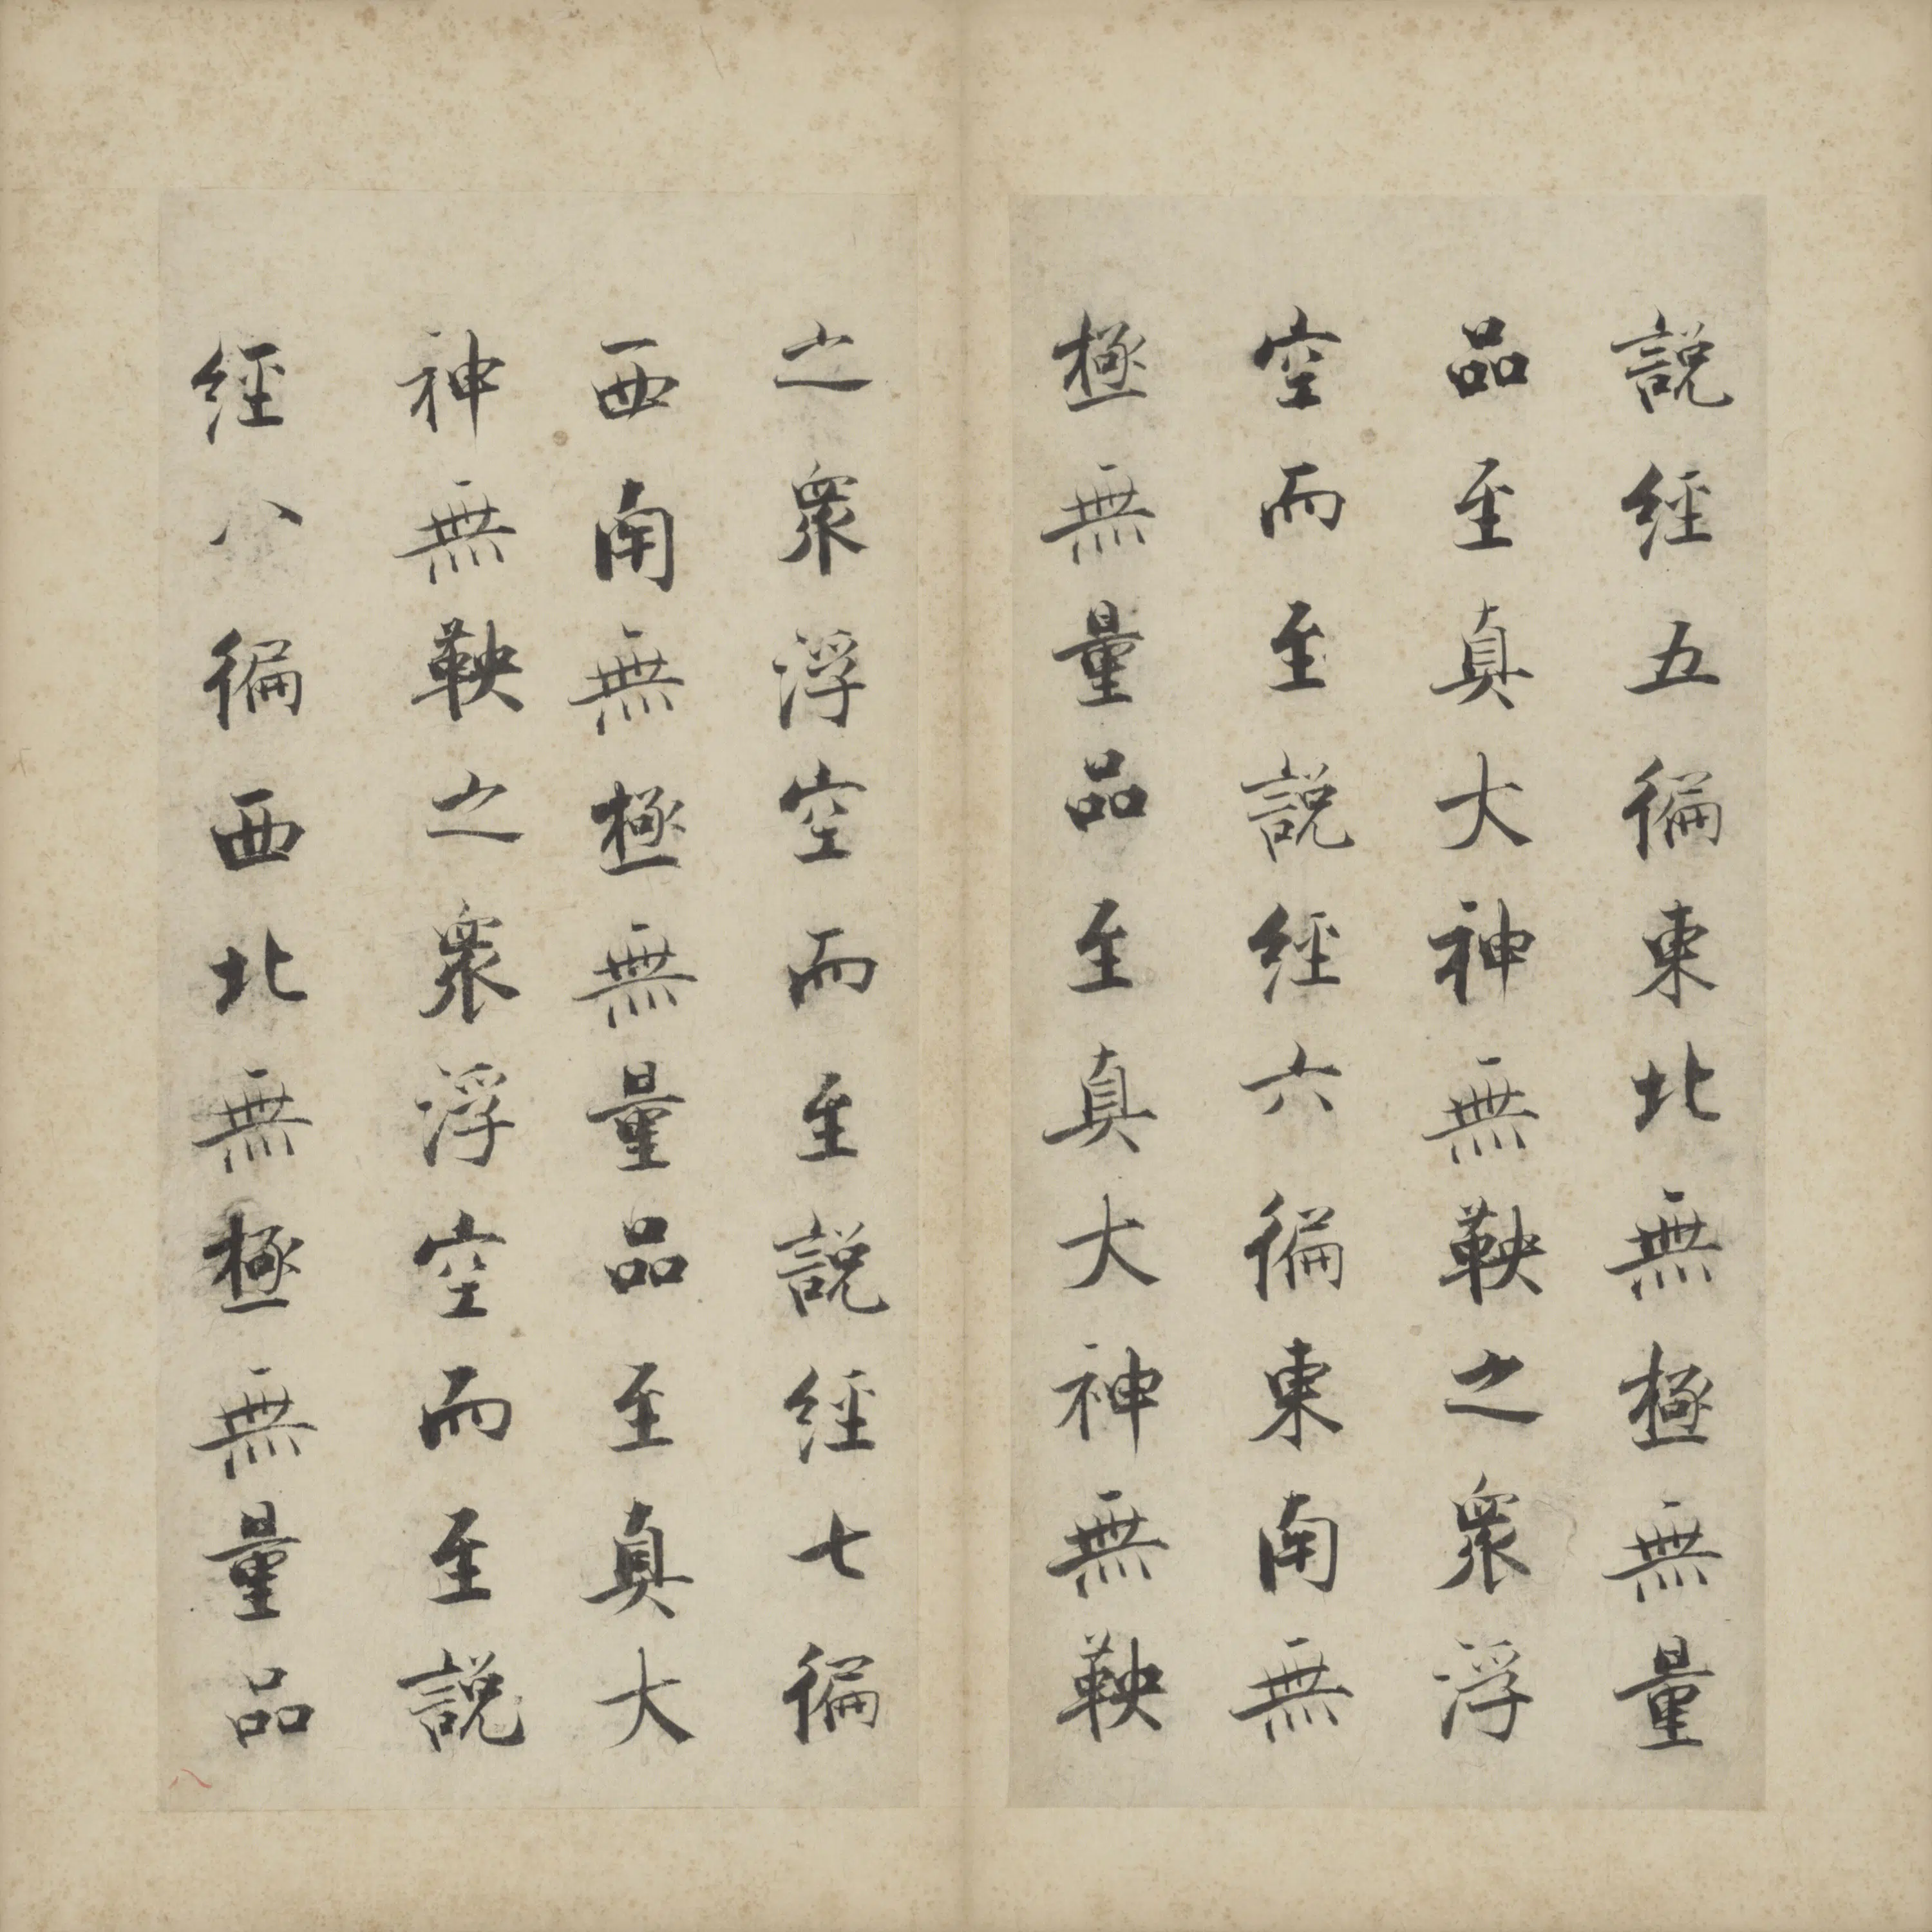 説經五徧東北無極無量
品至真大神無鞅之衆浮
空而至說經六徧東南無
極無量品至真大神無鞅
之衆浮空而至說經七徧
西南無極無量品至真大
神無鞅之衆浮空而至說
經八徧西北無極無量品
八